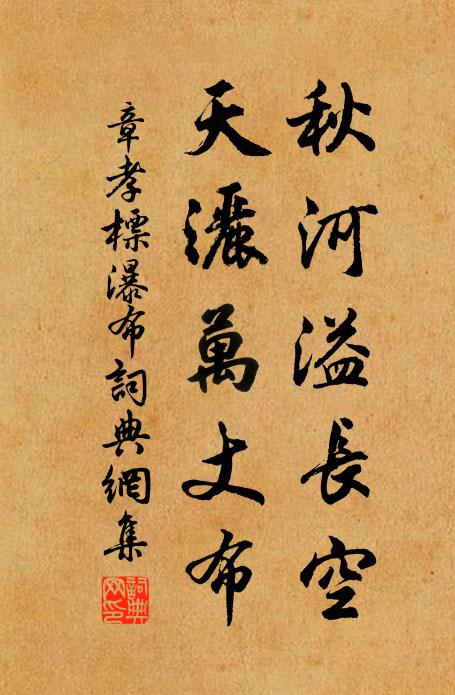 秋河溢長空
天灑萬丈布
章孝標瀑布詞典網集
詞典网印